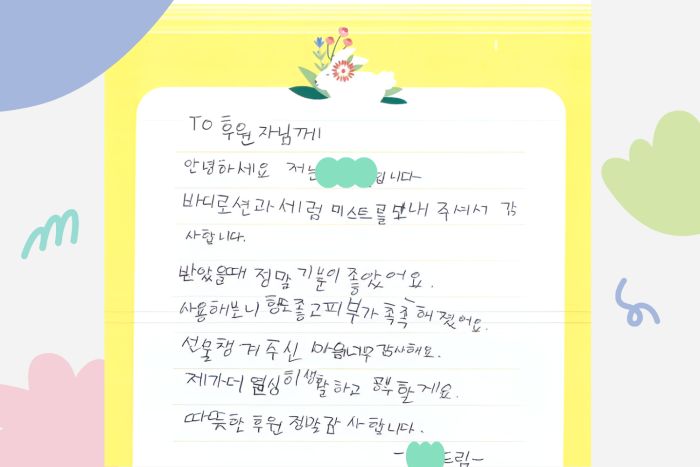 TO 후원자님께
안녕하세요 저는 입니다
바디로션과 세럼 미스트를 보내 주셔서 감
사합니다.
받았을때 정말 기분이 좋았어요.
사용해보니 향도좋고피부가 촉촉해졌어요.
선물챙겨주신 마음너무감사해요.
제가더 열심히생활하고 공부할게요.
따뜻한 후원 정말감사합니다.
-드림-